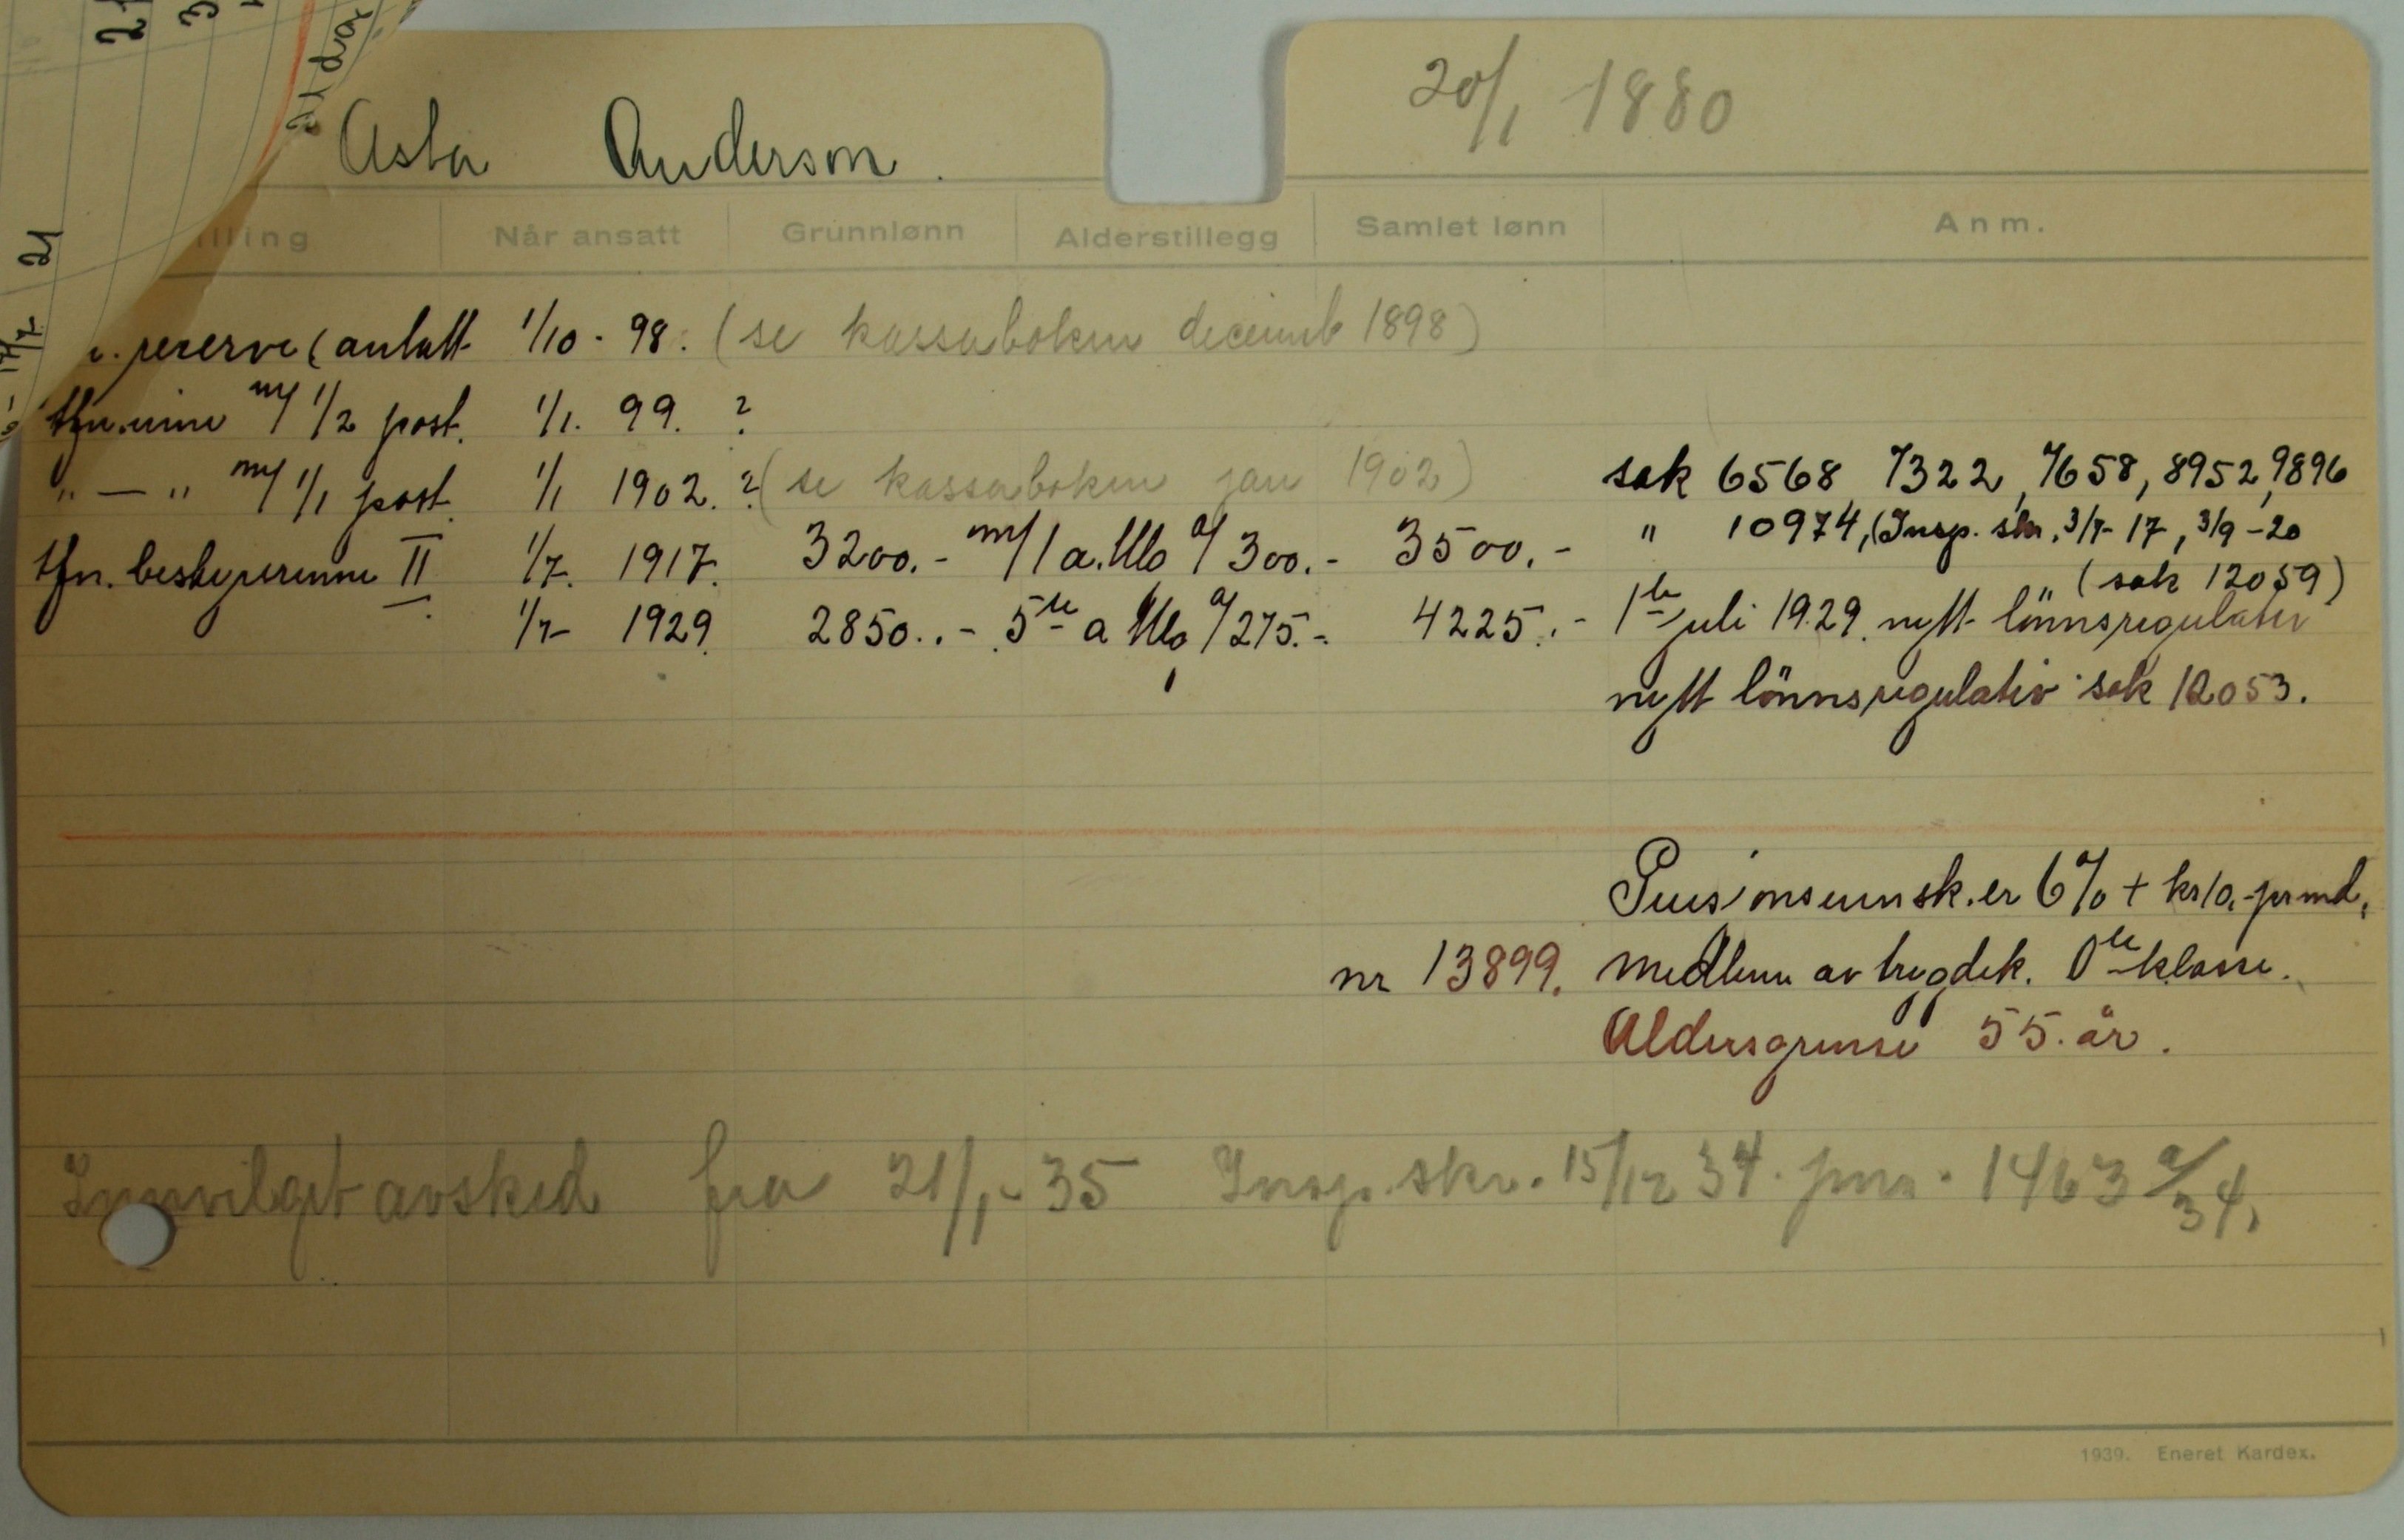 Asta Anderson. 20/1 1880
Når ansatt Grunnlønn Alderstillegg Samlet lønn Anm.
reserve (antatt 1/10 - 98. (se kassaboken decemb 1898)
tfn.inne m/ 1/2 post. 1/1. 99. ?
" — " m/ 1/1 post. 1/1 1902. ? (se kassaboken jan 1902) sak 6568, 7322, 7658, 8952, 9896
tfn. bestyrerinne II 1/7. 1917. 3200.- m/1 a.tillo a/ 300.- 3500.- " 10974, (Insp. skr. 3/7-17, 3/9-20
(sak 12059)
1/7- 1929. 2850..- 5te a tillo a/ 275.- 4225.- 1ste juli 1929. nytt lönnsregulativ
nytt lönnsregulativ sak 12053.
Pensjonsinnsk. er 6% + kr 10,- pr md.
nr 13899. medlem av trygdek. 0te klasse.
Aldersgrense 55. år.
Innvilget avsked fra 21/1-35 Insp. skr. 15/12 34. jnr. 1463 a/34.
1939. Eneret Kardex.